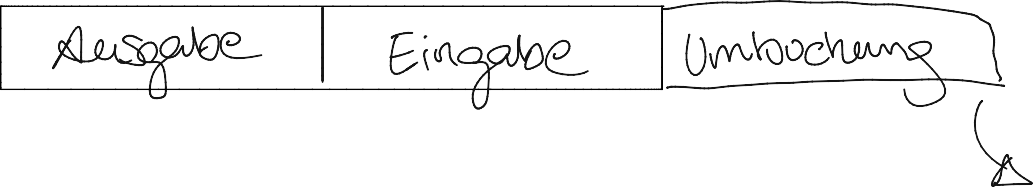 Ausgabe Eingabe Umbuchung